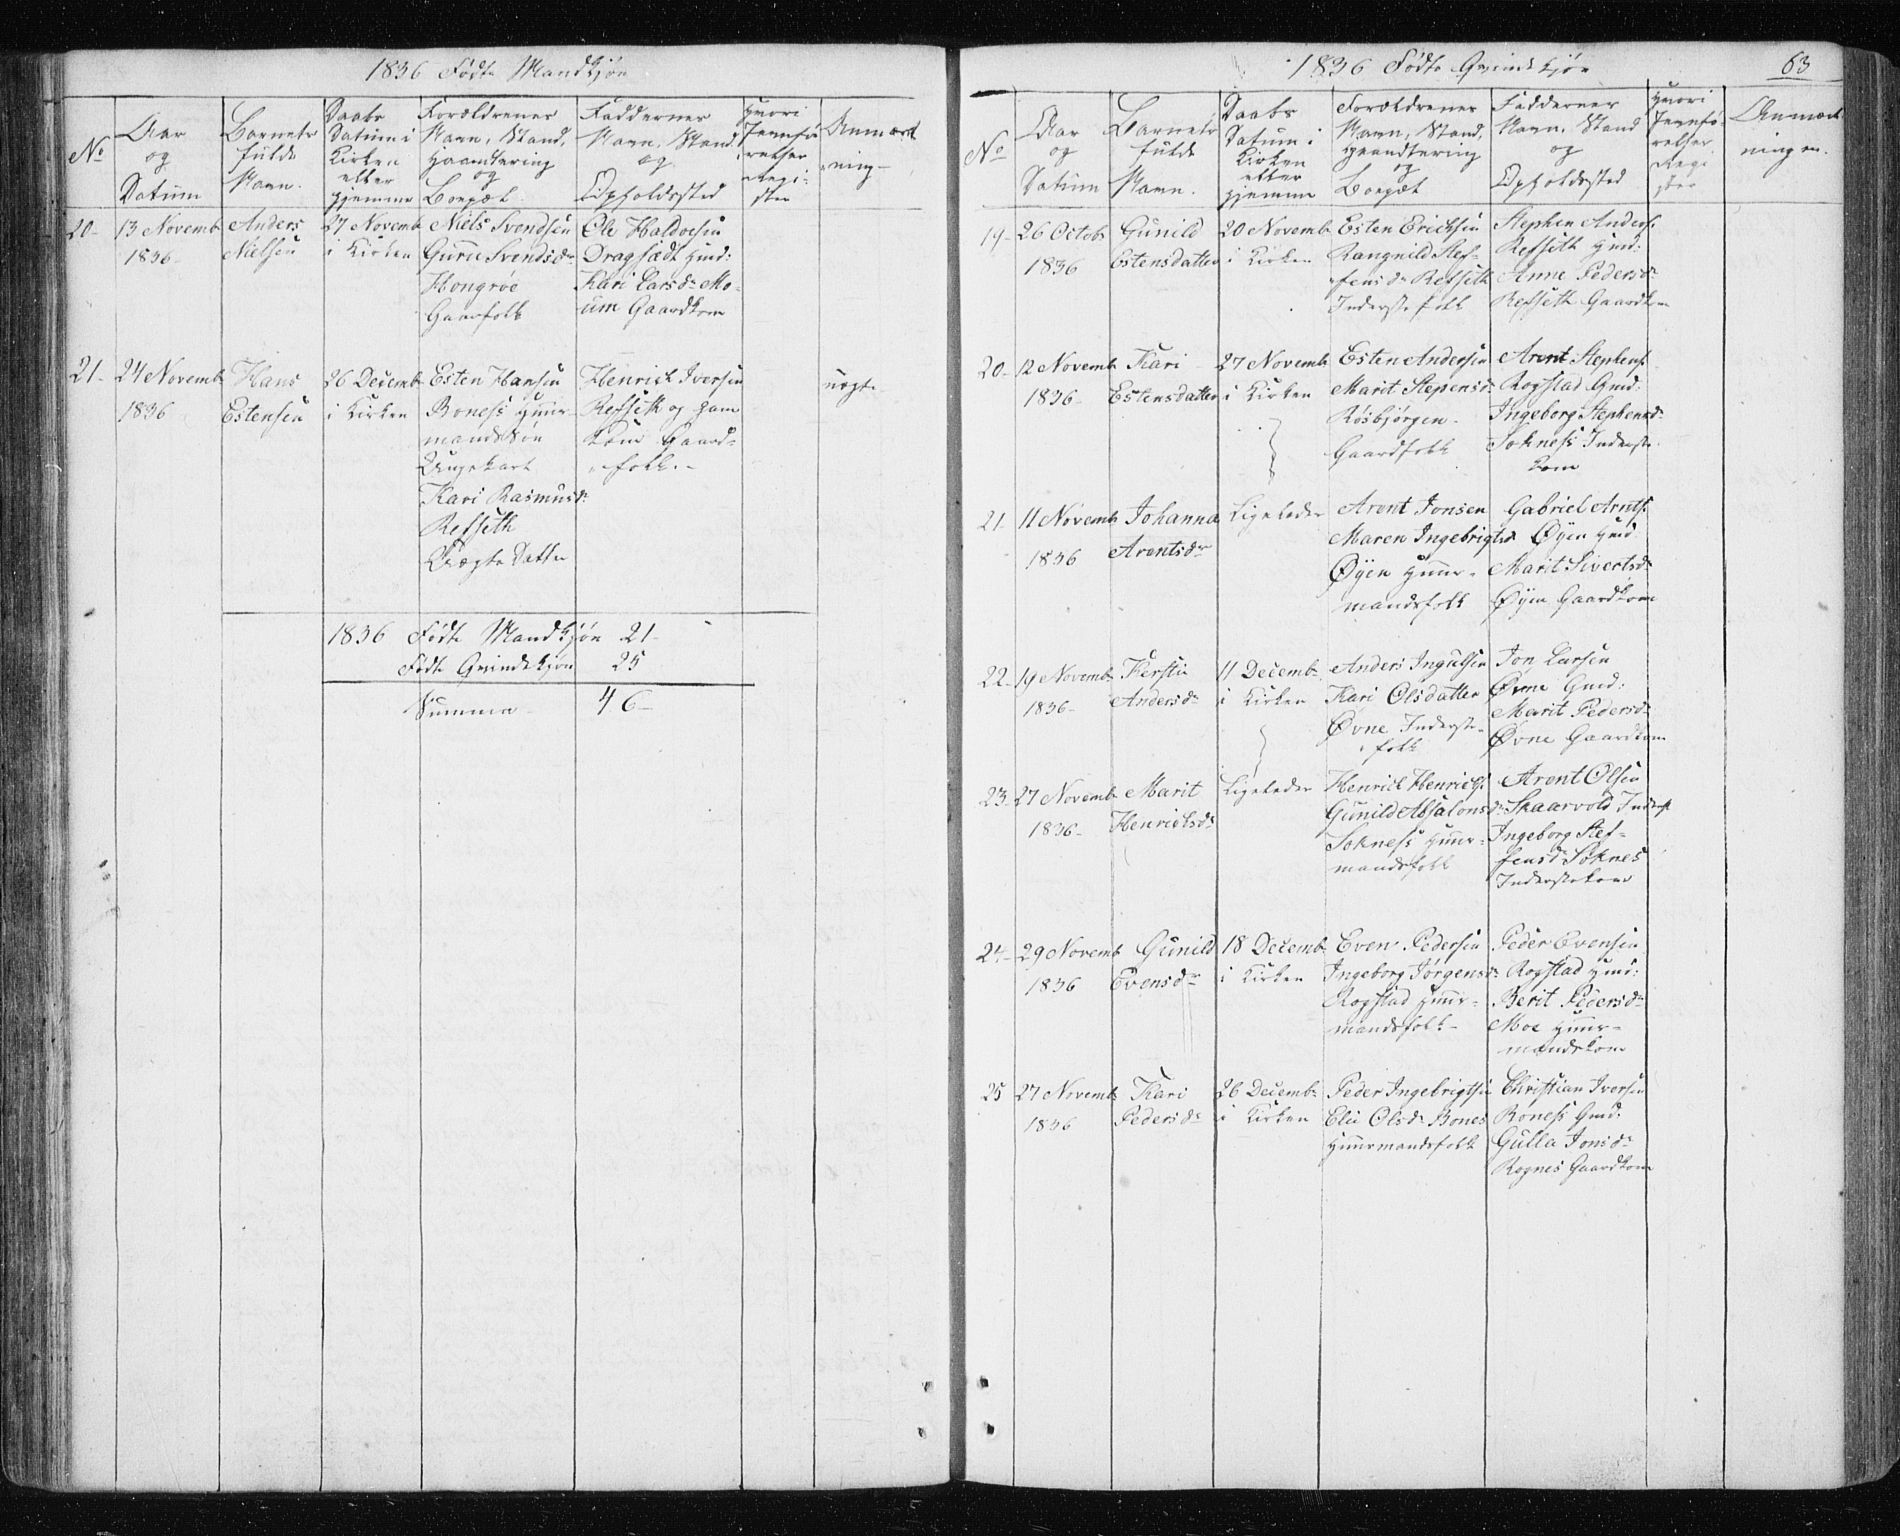 1836 Fødte Mandkjøn
No
Aar
og
Datum
Barnets
fulde
Navn.
Daabs
Datum i
Kirken
eller
hjemme
Forældrenes
Navn, Stand,
Haandtering
og
Boepæl
Faddernes
Navn, Stand
og
Opholdssted
Hvori
Jevnfø-
relses
Regi-
ster
Anmærk
ning
20- 13 Novemb
1836-
Anders
Nielsen
27 Novemb
i Kirken
Niels Svendsen
Guru Svendsdr
Hongröe
Gaarfolk
Ole Haldorsen
Dragsædt Hmd:
Kari Larsdr Mo-
um Gaardkone
21- 24 Novemb
1836
Hans
Estensen
26 Decemb
i Kirken
Esten Hansen
Boness Huus-
mandssøn
Ungekart
Kari Rasmusdr
Refseth
Henrich Iversen
Refseth og ham
Kone Gaard-
folk.-
uægte
1836 Fødte Mandkjøn 21-
Fødte Qvindekjøn 25
Summa 46-
1836 Fødte Qvindekjøn
63
No
Aar
og
Datum
Barnets
fulde
Navn.
Daabs
Datum i
Kirken
eller
hjemme
Forældrenes
Navn, Stand,
Haandtering
og
Boepæl
Faddernes
Navn, Stand
og
Opholdssted
Hvori
Jevnfø-
relses
Regi-
ster
Anmærk
ningen.
19- 26 Octobr
1836
Gunild
Estensdatter
20 Novemb
i Kirken
Esten Erichsen
Rangnild Stef-
fensdr Refseth
Inderste folk
Stephen Anders.
Refseth Hmd:
Anne Pedersdr
Refseth Gaardkone
20- 12 Novemb
1836-
Kari
Estensdatter
27 Novemb
i Kirken
Esten Andersen
Marit Stepensdr
Røsbjørgen.
Gaardfolk
Arent Stephens.
Rogstad Gmd:
Ingeborg Stephensdr
Sokness Inderste
kone
21 11 Novemb
1836
Johanna
Arentsdr
Ligeledes
Arent Jonsen
Maren Ingebrigtsd
Øyen Huus-
mandsfolk
Gabriel Arnts.
Øyen Hmd
Marit Sivertsdr
Øyen Gaardkone
22- 19 Novemb
1836-
Kerstin
Andersdr
11 Decemb
i Kirken
Anders Ingulsen
Kari Olsdatter
Øvne Inderste-
folk
Jon Larsen
Øvne Gmd:
Marit Pedersdr
Øvne Gaardkone
23- 27 Novemb
1836-
Marit
Henrichsdr
Ligeledes
Henrich Henrichs.
Gunild Absalonsdr
Sokness Huus-
mandsfolk
Arent Olsen
Skaarvold Inderst
Ingeborg Stef-
fensdr Soknes
Inderstekone
24- 29 Novemb
1836
Gunild
Evensdr
18 Decemb
i Kirken
Even Pedersen
Ingeborg Jørgensdr
Rogstad Huus-
mandsfolk-
Peder Evensen
Rogstad Hmd:
Berit Pedersdr
Moe Huus-
mandskone
25 27 Novemb
1836
Kari
Pedersdr
26 Decemb
i Kirken
Peder Ingebrigtsen
Eli Olsdr Bones
Huusmandsfolk
Christian Iversen
Boness Gmd:
Gulla Jonsdr
Rognes Gaardkone